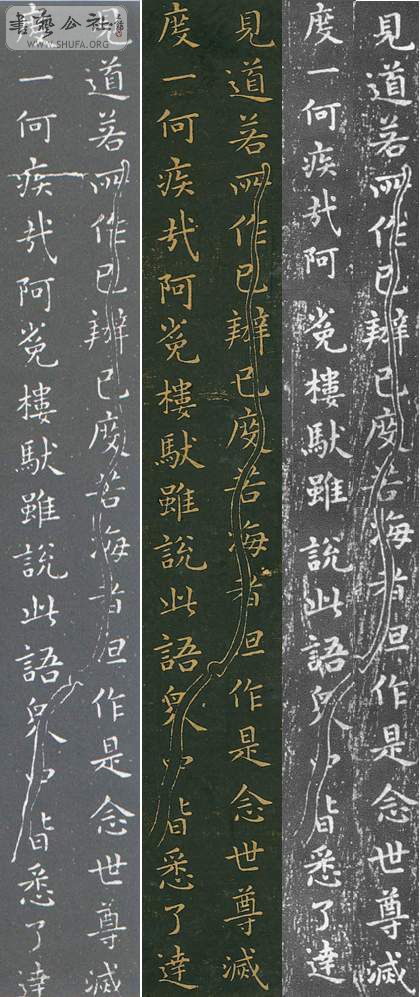 書藝公社
WWW.SHUFA.ORG
見道若所作已辦已度苦海者但作是念世尊滅
度一何疾哉阿㝹樓馱雖說此語衆中皆悉了達
見道若所作已辦已度苦海者但作是念世尊滅
度一何疾哉阿㝹樓馱雖說此語衆中皆悉了達
見道若所作已辦已度苦海者但作是念世尊滅
度一何疾哉阿㝹樓馱雖說此語衆中皆悉了達